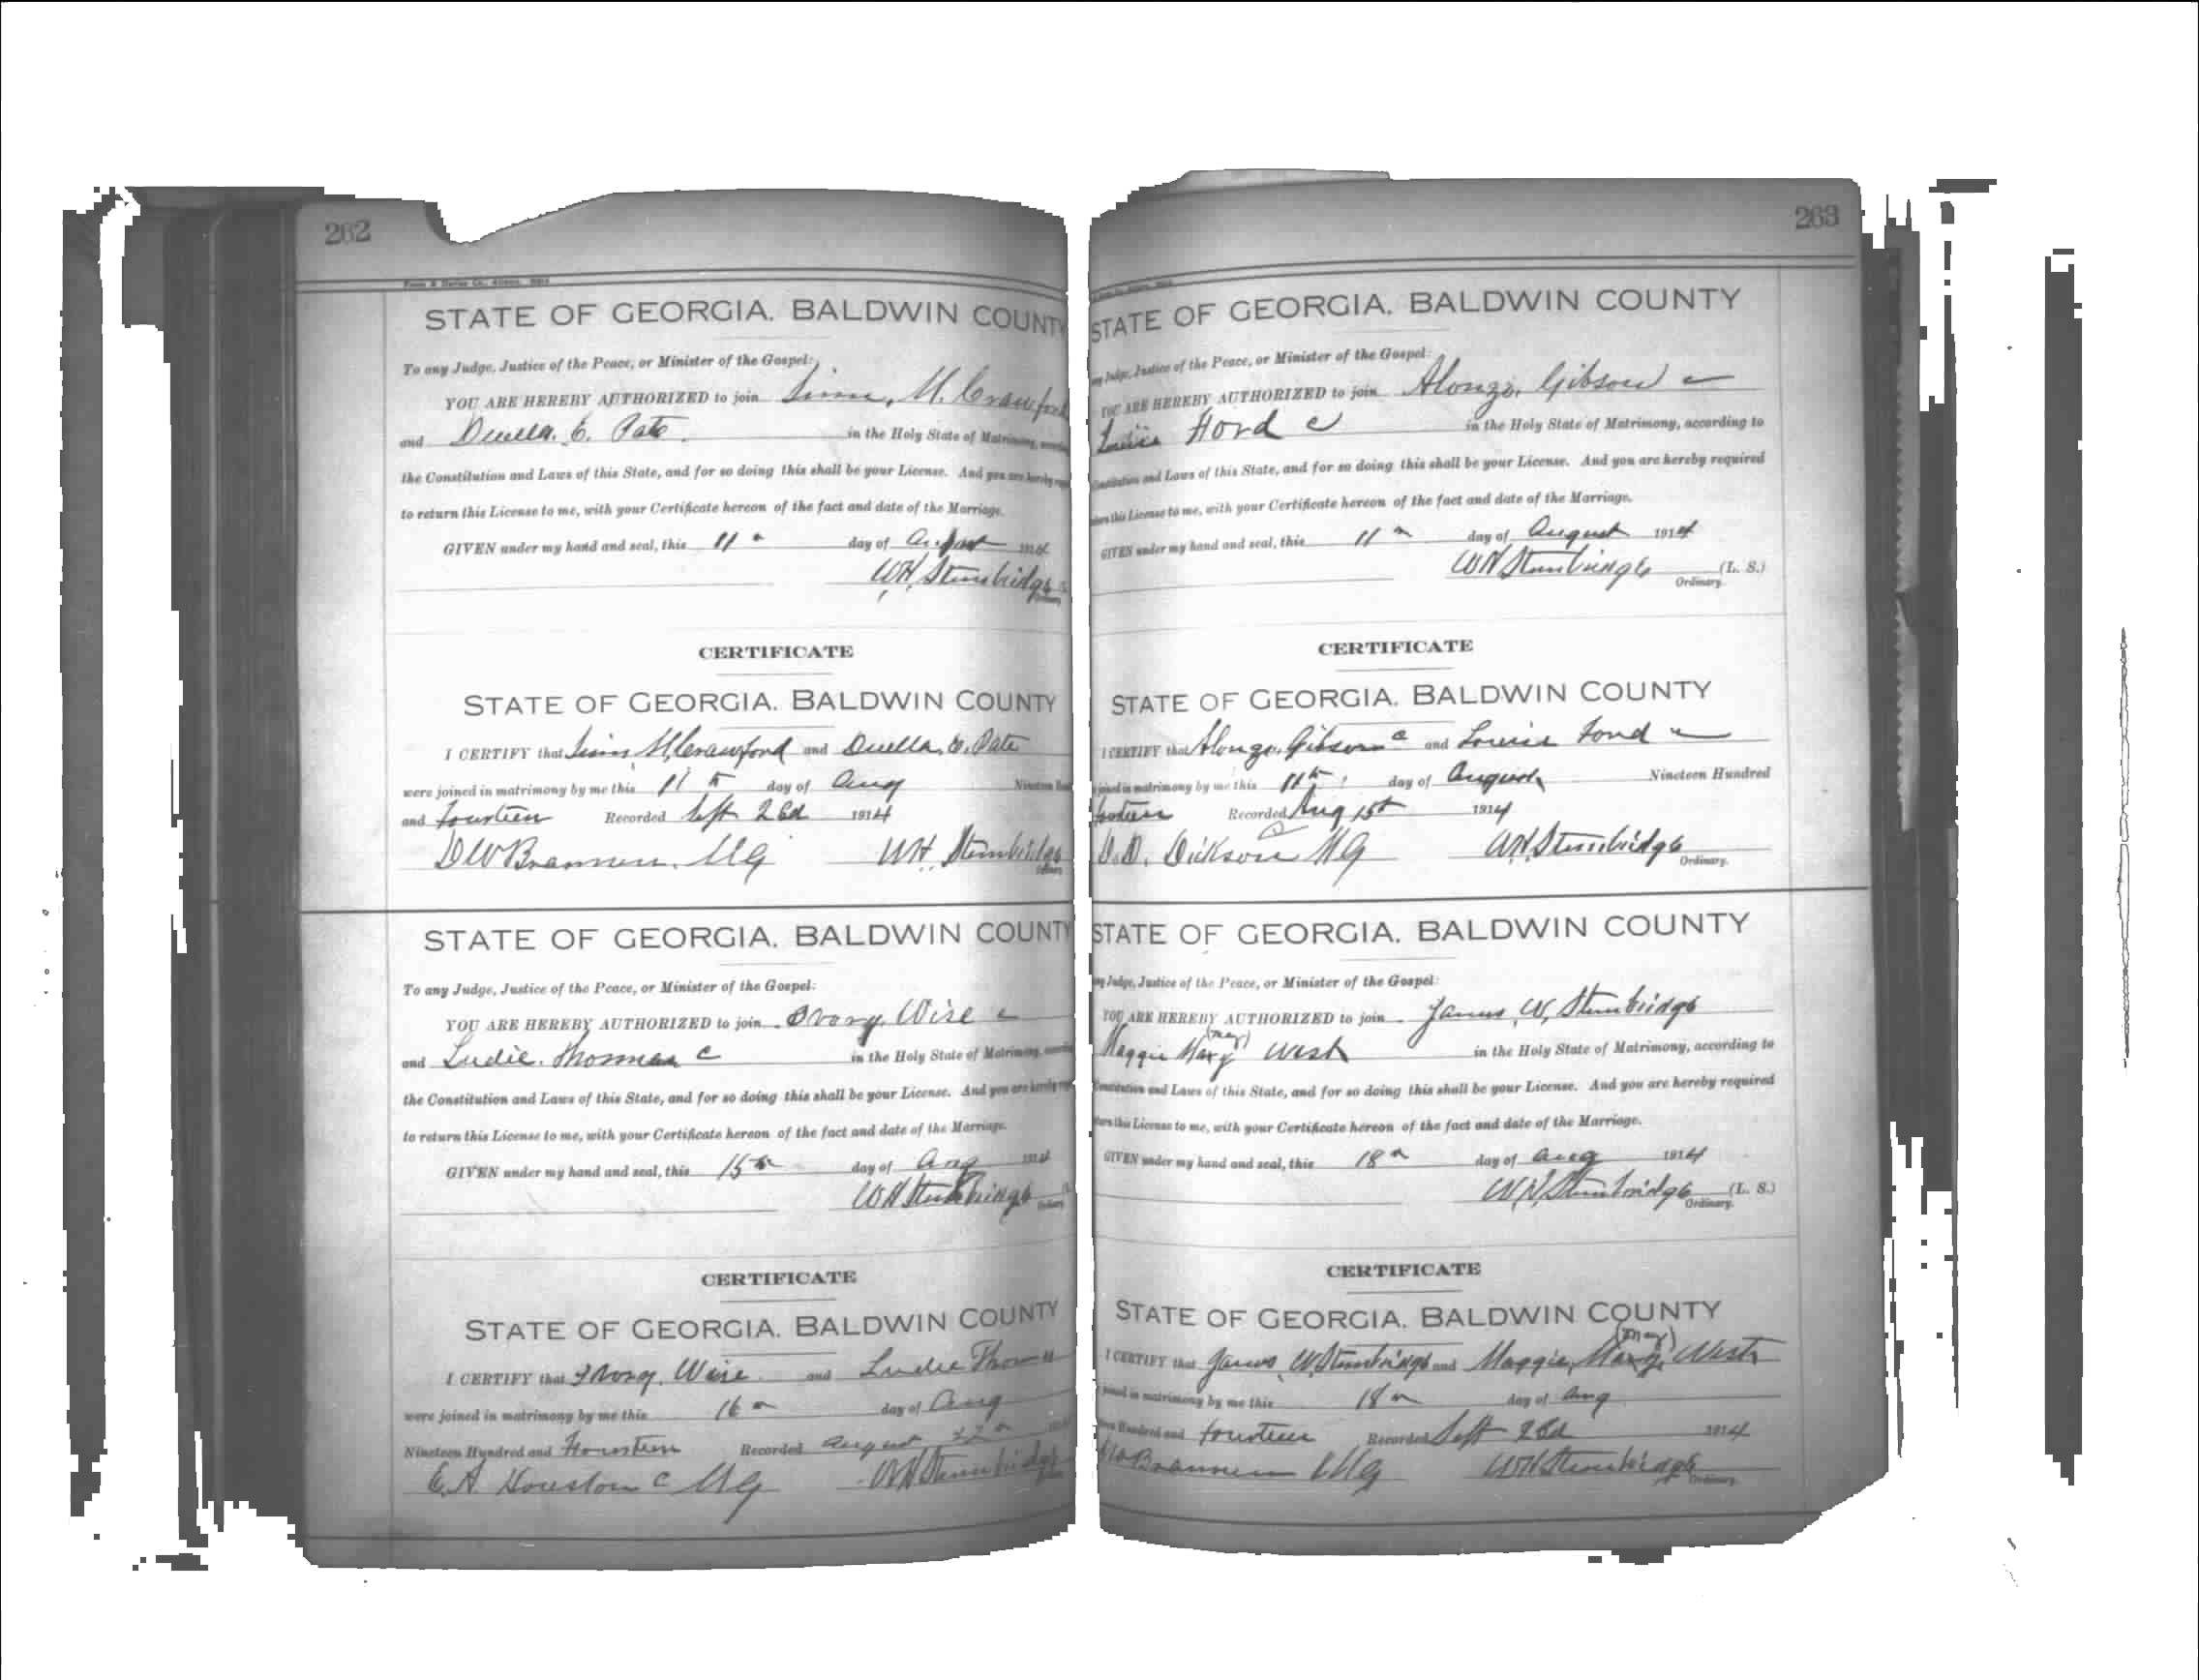 262
STATE OF GEORGIA. BALDWIN COUNTY
To any Judge, Justice of the Peace, or Minister of the Gospel:
YOU ARE HEREBY AUTHORIZED to join M. Crawford
and E. Pate in the Holy State of Matrimony,
the Constitution and Laws of this State, and for so doing this shall be your License. And you are hereby
to return this License to me, with your Certificate hereon of the fact and date of the Marriage.
GIVEN under my hand and seal, this 11 day of August 1914
WH Stembridge
CERTIFICATE
STATE OF GEORGIA. BALDWIN COUNTY
I CERTIFY that M. Crawford and E. Pate
were joined in matrimony by me this 11th day of Aug Nineteen
and fourteen Recorded Sept 1914
DW Brannen. MG WH Stembridge
STATE OF GEORGIA. BALDWIN COUNTY
To any Judge, Justice of the Peace, or Minister of the Gospel:
YOU ARE HEREBY AUTHORIZED to join Wise c
and Ludie. Thomas c in the Holy State of Matrimony,
the Constitution and Laws of this State, and for so doing this shall be your License. And you are hereby
to return this License to me, with your Certificate hereon of the fact and date of the Marriage.
GIVEN under my hand and seal, this 15th day of Aug 1914
WH Stembridge
CERTIFICATE
STATE OF GEORGIA. BALDWIN COUNTY
I CERTIFY that Ivory. Wise and Ludie Thomas
were joined in matrimony by me this 16 day of Aug
Nineteen Hundred and Fourteen Recorded August
E.A. Houston c MG WH Stembridge
263
STATE OF GEORGIA. BALDWIN COUNTY
Judge, Justice of the Peace, or Minister of the Gospel:
YOU ARE HEREBY AUTHORIZED to join Alonzo, Gibson c
Ford c in the Holy State of Matrimony, according to
Constitution and Laws of this State, and for so doing this shall be your License. And you are hereby required
this License to me, with your Certificate hereon of the fact and date of the Marriage.
GIVEN under my hand and seal, this 11 day of August 1914
WH Stembridge (L. S.)
Ordinary.
CERTIFICATE
STATE OF GEORGIA. BALDWIN COUNTY
I CERTIFY that Alonzo, Gibson c and Ford c
joined in matrimony by me this 11th day of August Nineteen Hundred
fourteen Recorded Aug 15th 1914
Dickson MG WH Stembridge
Ordinary.
STATE OF GEORGIA. BALDWIN COUNTY
Judge, Justice of the Peace, or Minister of the Gospel:
YOU ARE HEREBY AUTHORIZED to join James, W, Stembridge
(may)
Maggie Mary West in the Holy State of Matrimony, according to
Constitution and Laws of this State, and for so doing this shall be your License. And you are hereby required
this License to me, with your Certificate hereon of the fact and date of the Marriage.
GIVEN under my hand and seal, this 18 day of Aug 1914
WH Stembridge (L. S.)
Ordinary.
CERTIFICATE
STATE OF GEORGIA. BALDWIN COUNTY
(may)
I CERTIFY that James W. Stembridge and Maggie, Mary, West
joined in matrimony by me this 18 day of Aug
Hundred and fourteen Recorded Sept 1914
Brannen MG WH Stembridge
Ordinary.